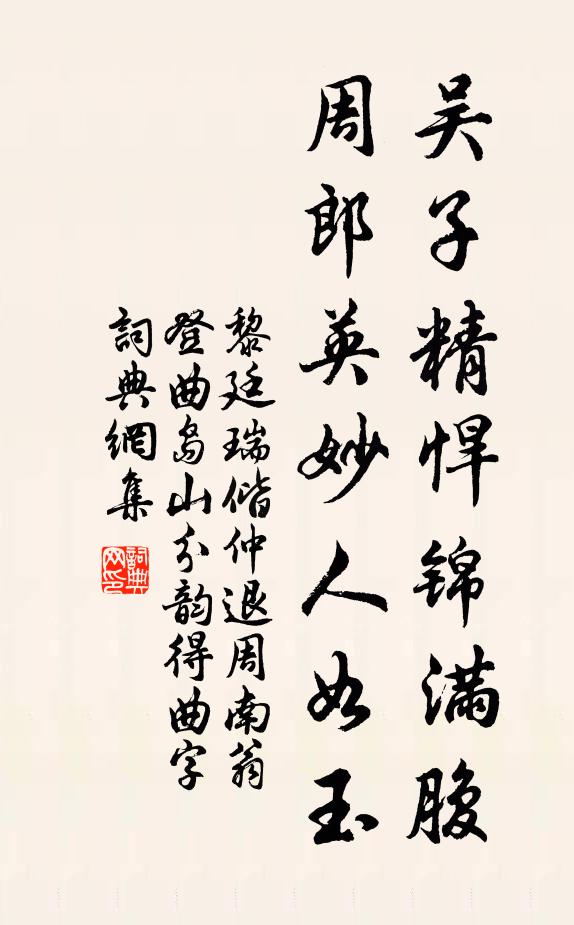 吴子精悍锦满腹
周郎英妙人如玉
黎廷瑞偕仲退周南翁
登曲岛山分韵得曲字
詞典網集
詞典
网印